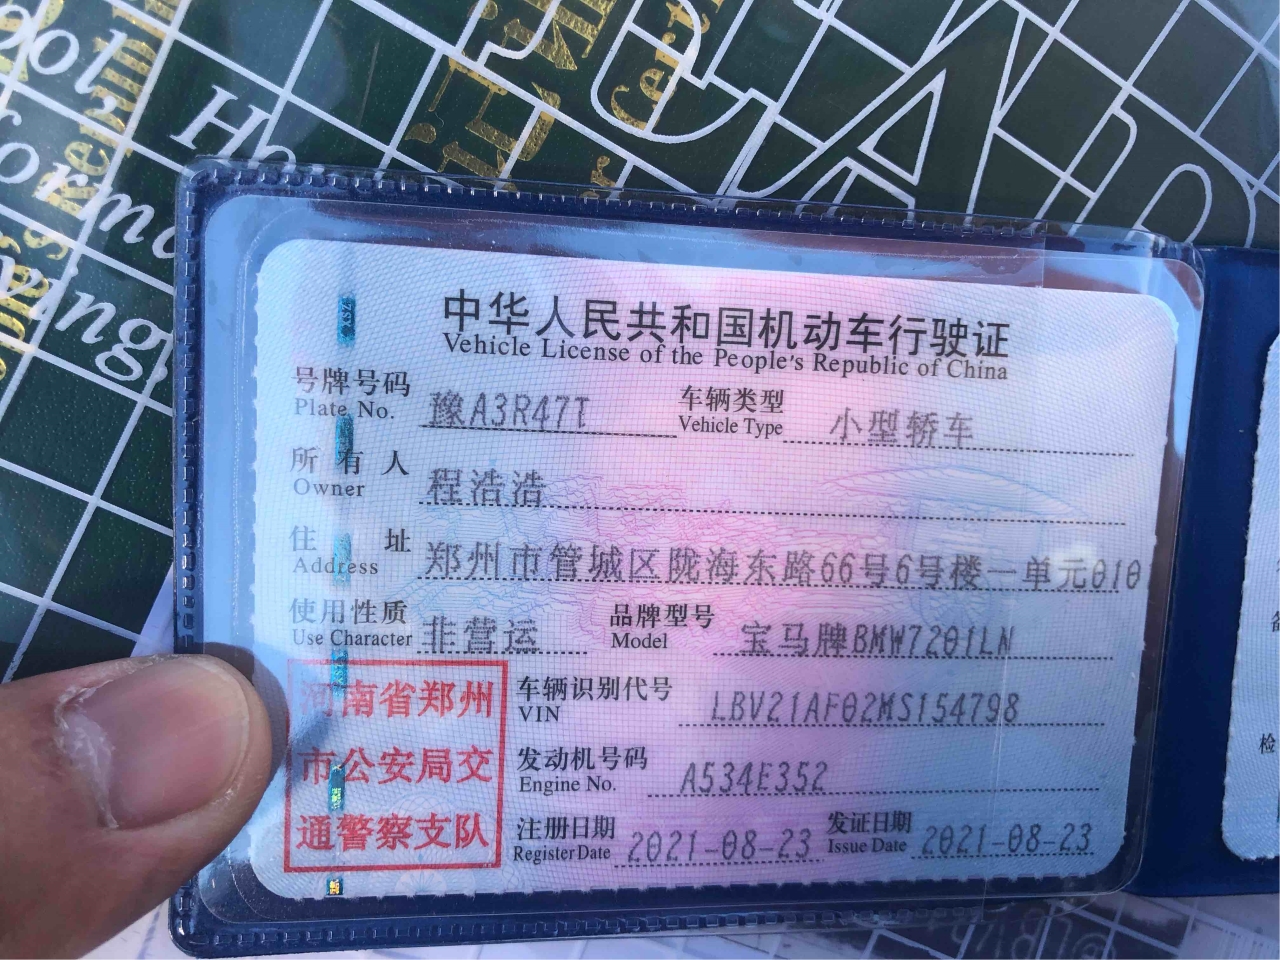 中华人民共和国机动车行驶证
Vehicle License of the People's Republic of China
号牌号码 豫A3R47T 车辆类型 小型轿车
Plate No. Vehicle Type
所有人 程浩浩
Owner
住址 郑州市管城区陇海东路66号6号楼一单元010
Address
使用性质 非营运 品牌型号 宝马牌BMW7201LN
Use Character Model
河南省郑州
市公安局交
通警察支队
车辆识别代号 LBV21AF02MS154798
VIN
发动机号码 A534E352
Engine No.
注册日期 2021-08-23 发证日期 2021-08-23
Register Date Issue Date
检